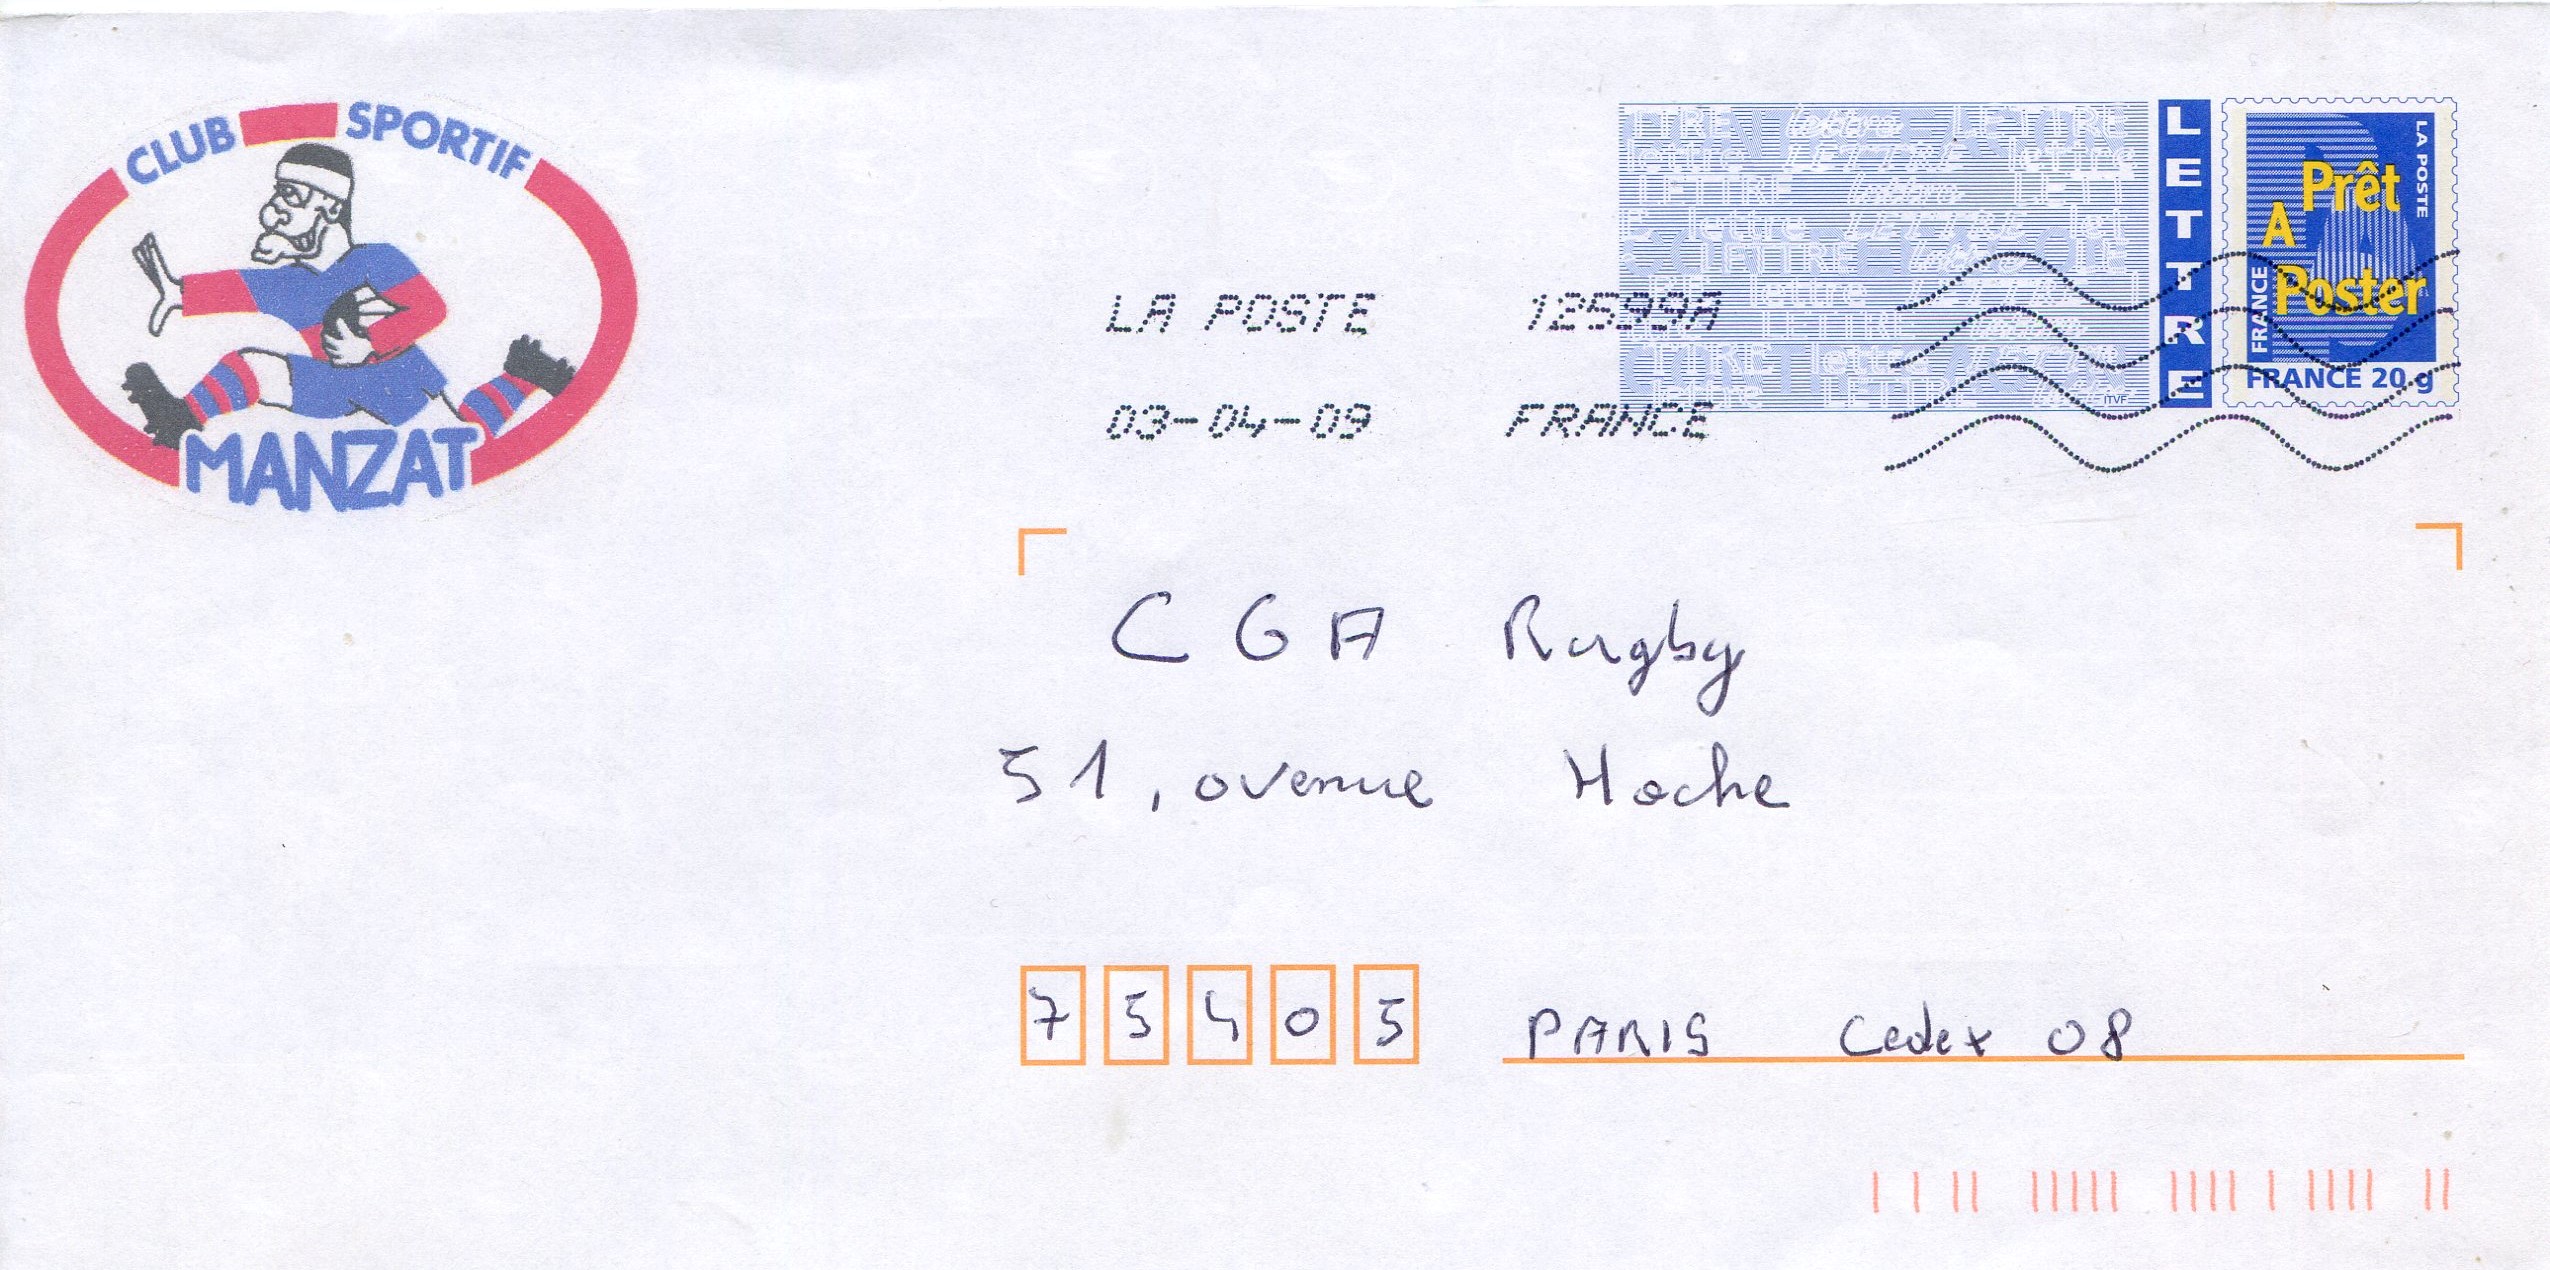 CLUB SPORTIF
MANZAT
LA POSTE 12599A
03-04-09 FRANCE
LETTRE
LA POSTE
Prêt
A
Poster
FRANCE
FRANCE 20 g
ITVF
C G A Rugby
51, avenue Hoche
75405 PARIS Cedex 08